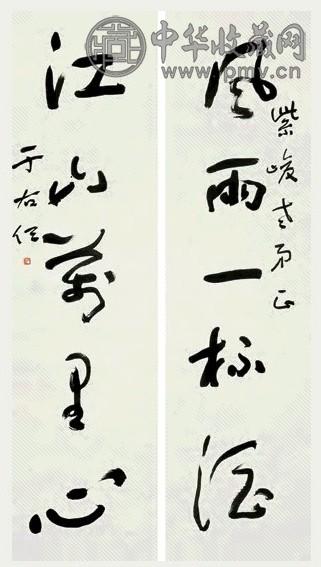 中华收藏网
www.ipmv.cn
紫峻老弟正
风雨一杯酒
江山萬里心
于右任